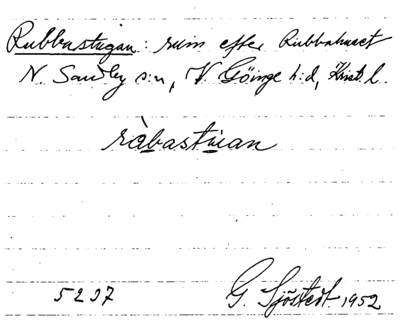 Rubbastugan: ruin efter Rubbahuset
N. Sandby s:n, V. Göinge h:d, Krist. l.
ràbastuan
5297
G. Sjöstedt 1952